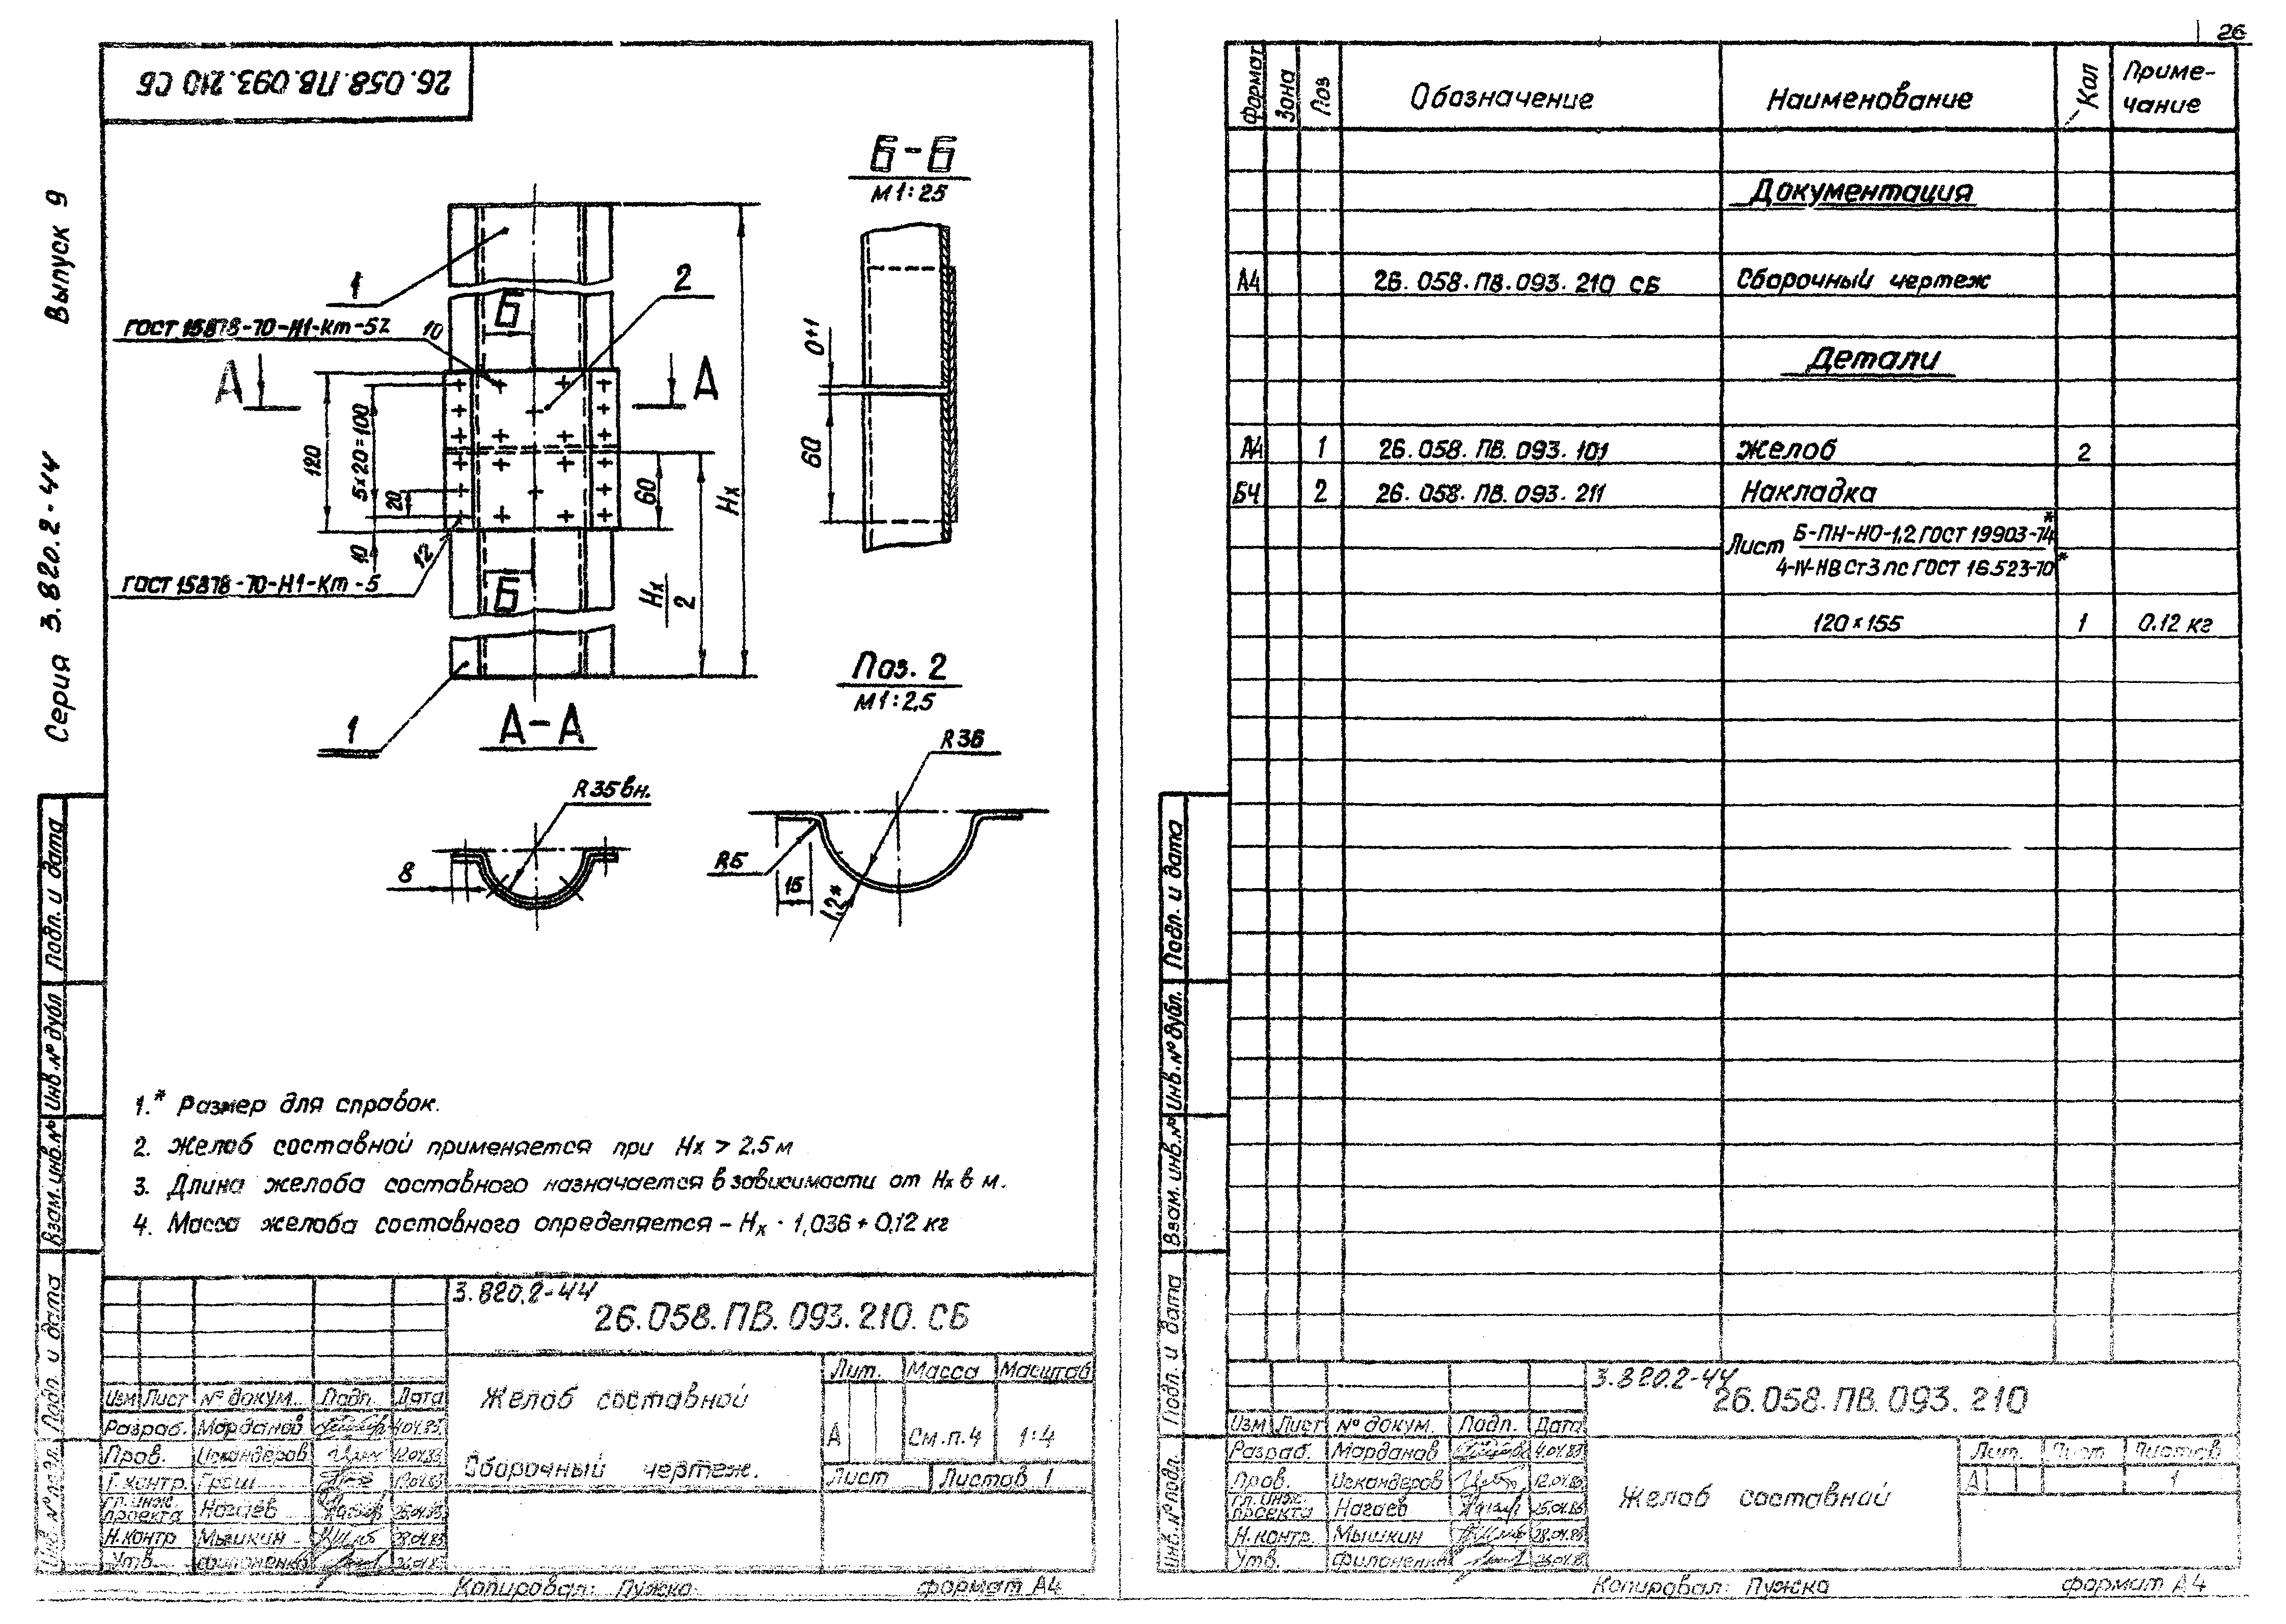 26.058.ПВ.093.210 СБ
Серия 3.820.2-44 Выпуск 9
Б-Б
М1:25
1
2
Б
ГОСТ 15878-70-Н1-Кт-52
10
А
А
120
5×20=100
20
10
12
60
Hx
Hx
2
ГОСТ 15878-70-Н1-Кт-5
Б
1
0+1
60
А-А
R35вн.
8
Поз. 2
М1:2,5
R36
R5
15
1,2*
1.* Размер для справок.
2. Желоб составной применяется при Hx > 2.5 м
3. Длина желоба составного назначается в зависимости от Hx в м.
4. Масса желоба составного определяется – Hx · 1,036 + 0,12 кг
Подп. и дата
Инв. № дубл
Взам. инв. №
Подп. и дата
Инв. № подл.
3.820.2-44
26.058.ПВ.093.210.СБ
Изм Лист № докум. Подп. Дата
Разраб. Марданов
Пров. Искандеров
Т.контр.
Гл. инж. проекта Нагаев
Н.контр Мышкин
Утв. Филоненко
Желоб составной
Сборочный чертеж.
Лит. Масса Масштаб
А См.п.4 1:4
Лист Листов 1
Копировал: Пужка формат А4
26
Формат Зона Поз Обозначение Наименование Кол Примечание
Документация
А4 26.058.ПВ.093.210 СБ Сборочный чертеж
Детали
А4 1 26.058.ПВ.093.101 Желоб 2
БЧ 2 26.058.ПВ.093.211 Накладка
Лист Б-ПН-НО-1,2 ГОСТ 19903-74*
4-IV-НВ Ст3 пс ГОСТ 16.523-70*
120×155 1 0.12 кг
Подп. и дата
Инв. № дубл.
Взам. инв. №
Подп. и дата
Инв. № подл.
3.820.2-44
26.058.ПВ.093.210
Изм Лист № докум. Подп. Дата
Разраб. Марданов
Пров. Искандеров
Гл. инж. проекта Нагаев
Н.контр. Мышкин
Утв. Филоненко
Желоб составной
Лит. Лист Листов
А 1
Копировал: Пужка формат А4